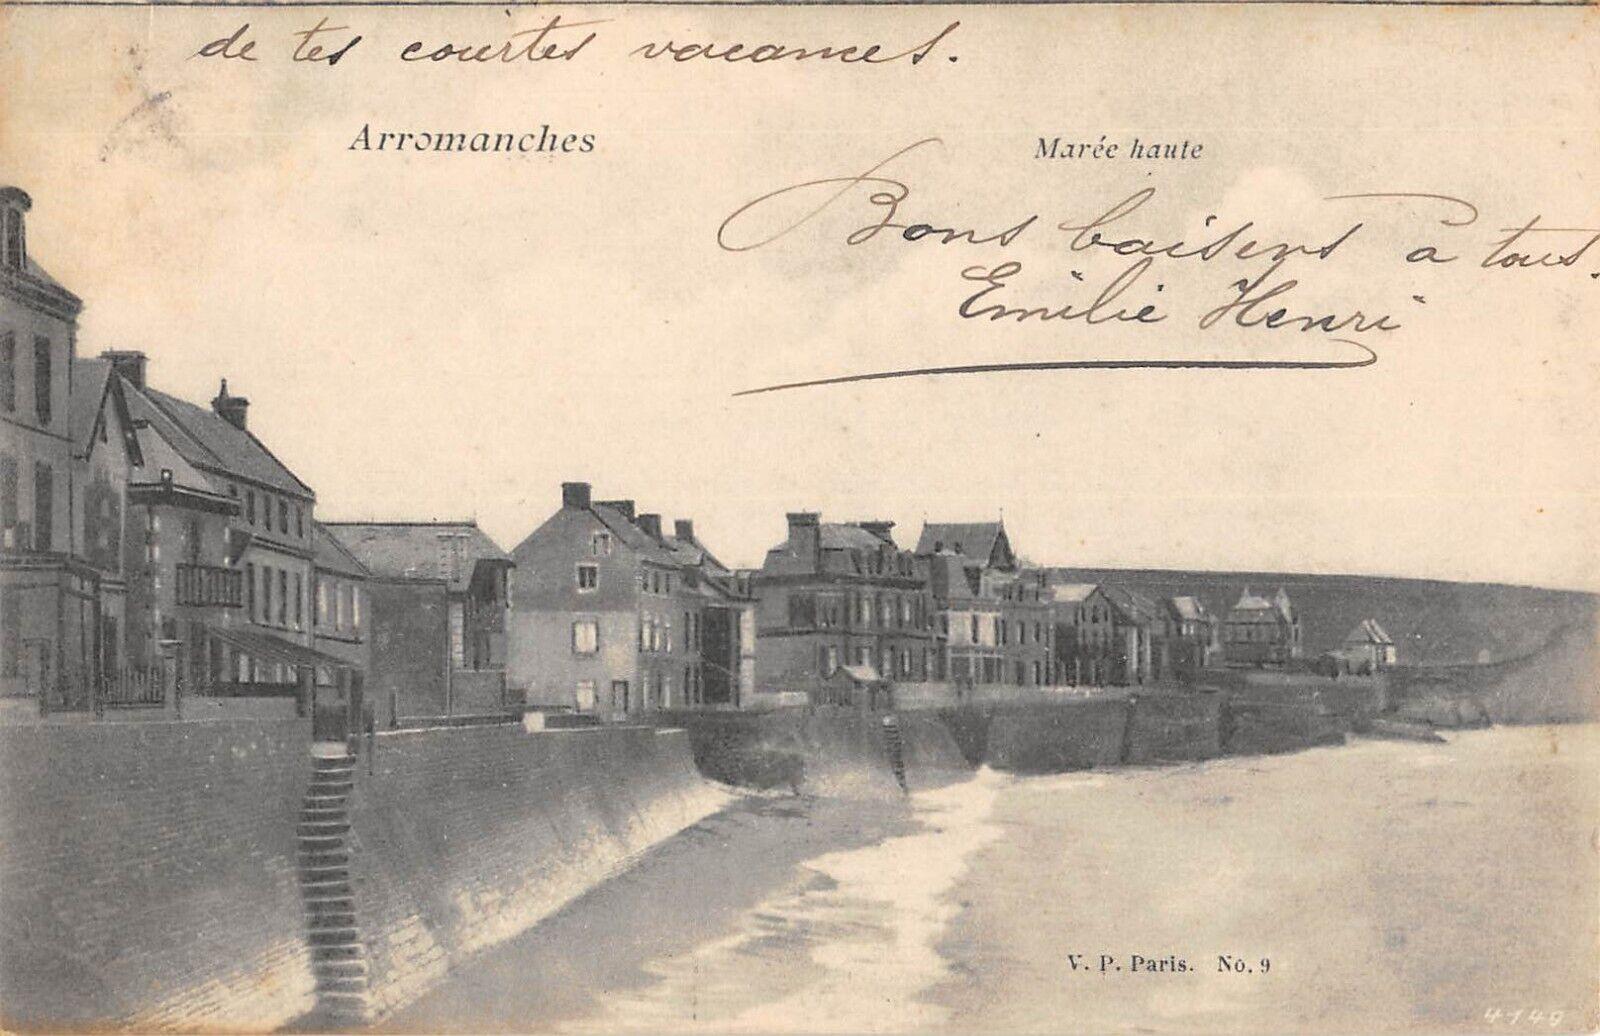 de tes courtes vacances.
Arromanches
Marée haute
Bons baisers à tous.
Emilie Henri
V. P. Paris. No. 9
4149